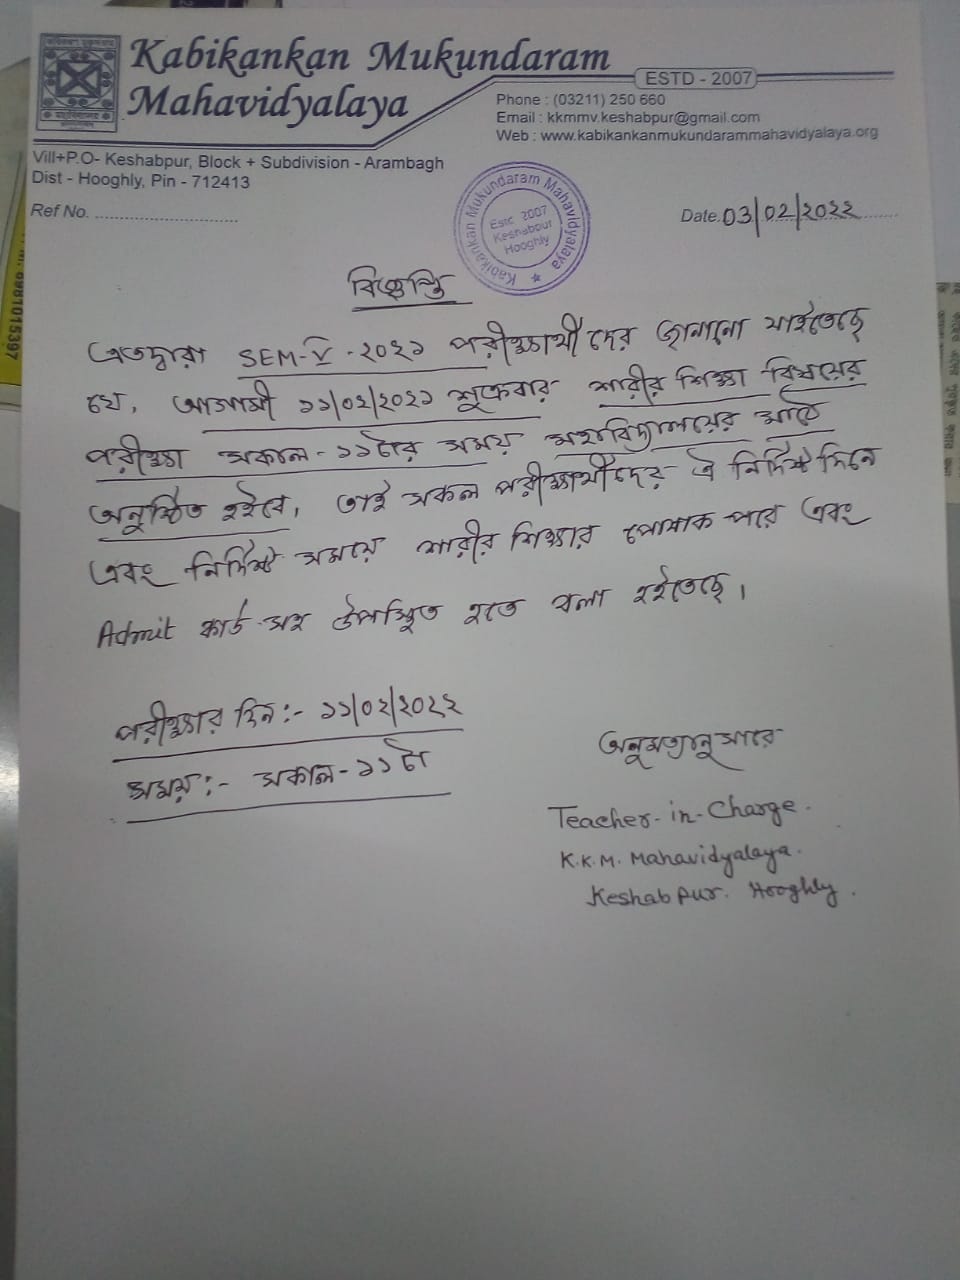 Kabikankan Mukundaram
Mahavidyalaya
ESTD - 2007
Phone : (03211) 250 660
Email : kkmmv.keshabpur@gmail.com
Web : www.kabikankanmukundarammahavidyalaya.org
Vill+P.O- Keshabpur, Block + Subdivision - Arambagh
Dist - Hooghly, Pin - 712413
Kabikankan Mukundaram Mahavidyalaya
Estd. 2007
Keshabpur
Hooghly
Ref No.
Date. 03/02/2022
বিজ্ঞপ্তি
এতদ্বারা SEM-V-২০২১ পরীক্ষার্থীদের জানানো যাইতেছে
যে, আগামী ১১/০২/২০২১ শুক্রবার শারীর শিক্ষা বিষয়ের
পরীক্ষা সকাল-১১টার সময় মহাবিদ্যালয়ের মাঠে
অনুষ্ঠিত হইবে, তাই সকল পরীক্ষার্থীদের ঐ নির্দিষ্ট দিনে
এবং নির্দিষ্ট সময়ে শারীর শিক্ষার পোষাক পরে এবং
Admit কার্ড সহ উপস্থিত হতে বলা হইতেছে।
পরীক্ষার দিন:- ১১/০২/২০২২
সময়:- সকাল-১১টা
অনুমত্যানুসারে
Teacher-in-Charge.
K.K.M. Mahavidyalaya.
Keshabpur. Hooghly.
8981015397